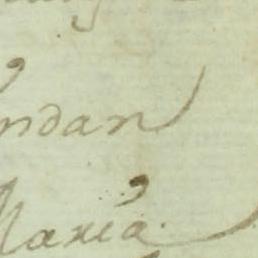 ndan
Maria